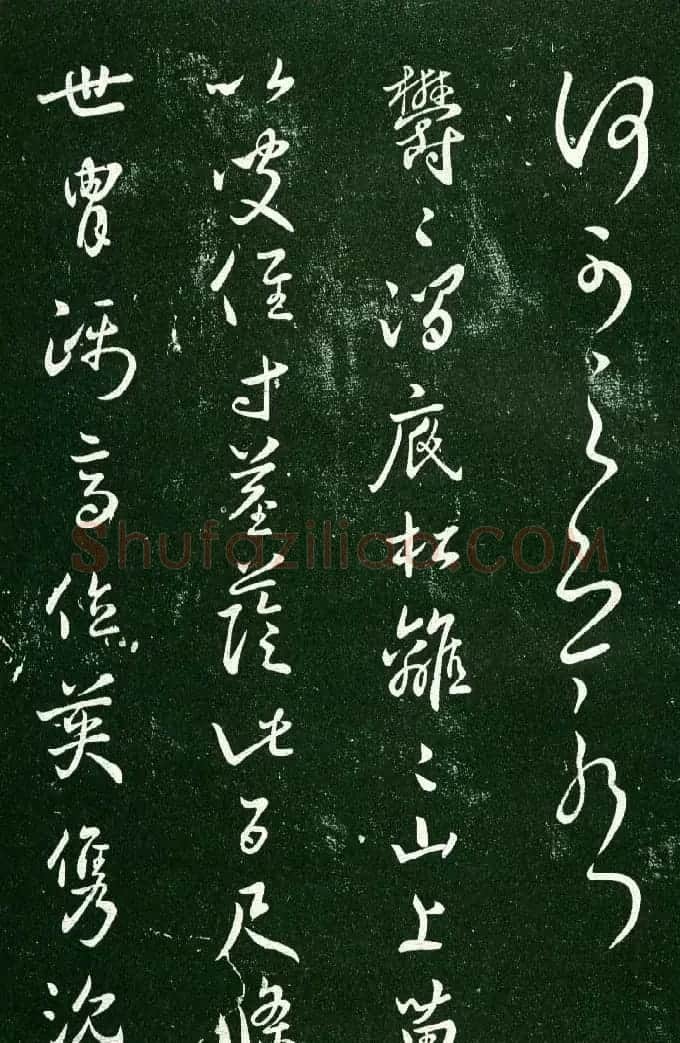 何可
鬱〻澗底松離〻山上苗
以彼徑寸莖蔭此百尺條
世胄躡高位英雋沉
Shufaziliao.COM